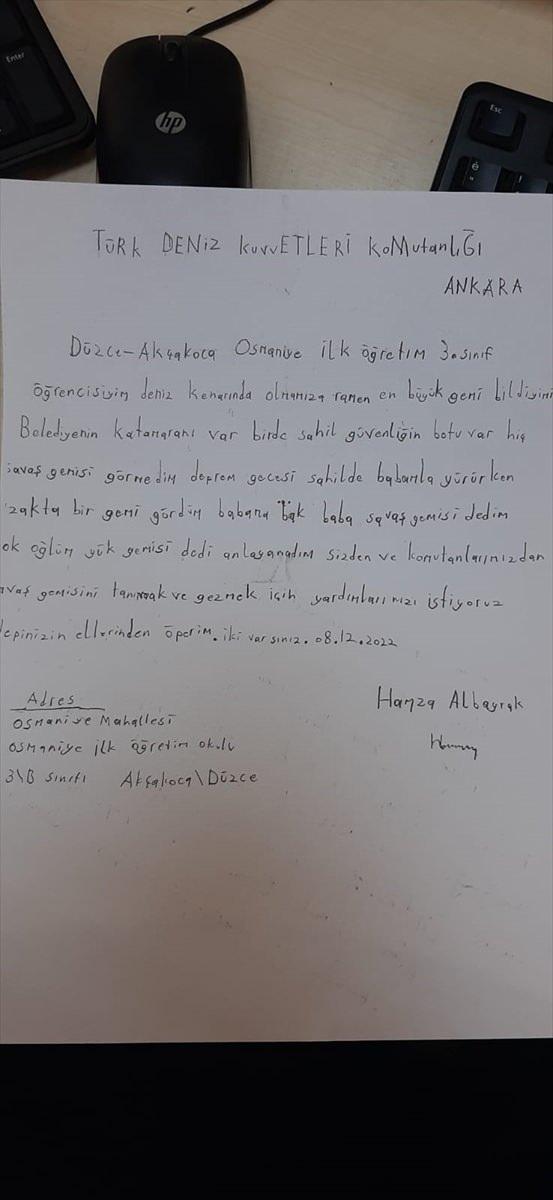 Enter
hp
Esc
é
TÜRK DENİZ KUVVETLERİ KOMutanLIĞI
ANKARA
Düzce-Akçakoca Osmaniye ilk öğretim 3.sınıf
öğrencisiyim deniz kenarında olmamıza ramen en büyük gemi bildiyimi
Belediyenin katamaranı var birde sahil güvenliğin botu var hiç
savaş gemisi görmedim deprem gecesi sahilde babamla yürürken
zakta bir gemi gördüm babama bak baba savaş gemisi dedim
ok oğlum yük gemisi dedi anlayamadım sizden ve komutanlarımızdan
avaş gemisini tanımak ve gezmek için yardımlarınızı istiyoruz
depinizin ellerinden öperim. iki varsınız. 08.12.2022
Adres
Osmaniye Mahallesi
Osmaniye ilk öğretim okulu
3\B sınıfı Akçakoca\Düzce
Hamza Albayrak